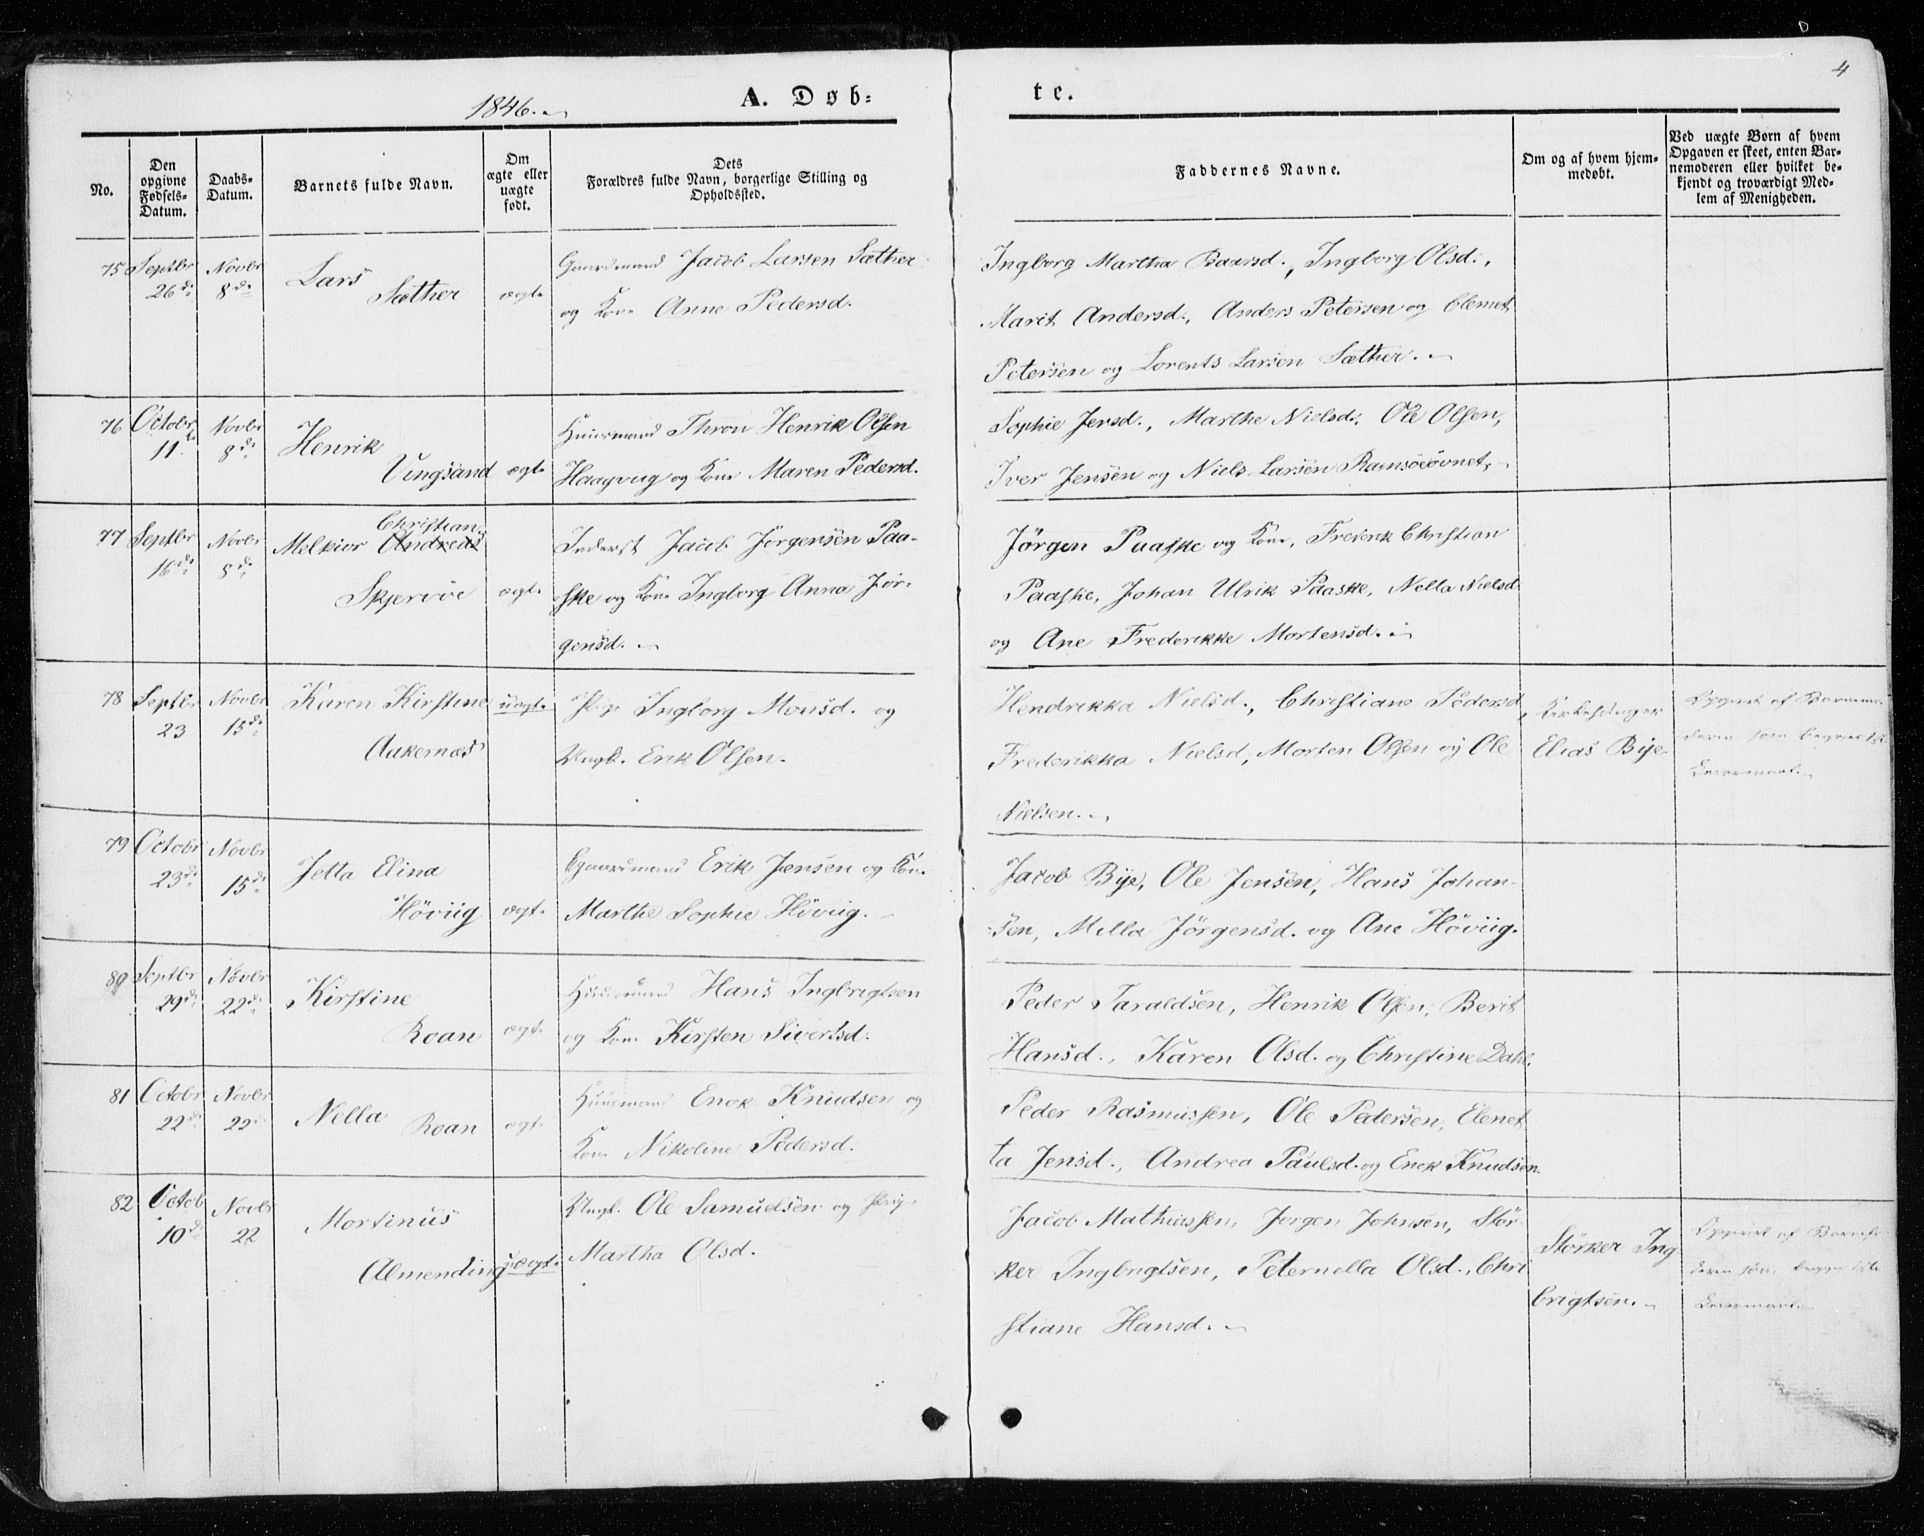 4
1846.
A. Døb=
te.
No.
Den opgivne Fødsels-Datum.
Daabs-Datum.
Barnets fulde Navn.
Om ægte eller uægte født.
Dets Forældres fulde Navn, borgerlige Stilling og Opholdssted.
Faddernes Navne.
Om og af hvem hjem-medøbt.
Ved uægte Børn af hvem Opgaven er skeet, enten Bar-nemoderen eller hvilket be-kjendt og troværdigt Med-lem af Menigheden.
75 Septbr 26d. Novbr 8de
Lars
Sæther ægte
Gaardmand Jacob Larsen Sæther
og Kone Anne Pedersd.
Ingborg Martha Baarsd., Ingborg Olsd.,
Marit Andersd., Anders Petersen og Clemet
Petersen og Lorents Larsen Sæther.
76 Octobr 11. Novbr 8d.
Henrik
Vingsand ægte
Huusmand Thron Henrik Olsen
Haagvug og Kone Maren Pedersd.
Sophie Jersd., Marthe Nielsd., Ole Olsen,
Iver Jensen og Niels Larsen Ramsøeøvnet,
77 Septbr 16d. Novbr 8d.
Christian
Melkior Andreas
Skjervøe ægte
Inderst Jacob Jørgensen Paa-
ske og Kone Ingborg Anna Jør-
gensd.
Jørgen Paaske og Kone, Frederik Christian
Paaske, Johan Ulrik Paaske, Nella Nielsd.
og Ane Frederikke Mortensd.
78 Septbr 23 Novbr 15d.
Karen Kirstine uægte
Aakernæs
Pige Ingborg Monsd. og
Ungk. Erik Olsen.
Hendrikka Nielsd., Christiane Pedersd.,
Frederikka Nielsd, Morten Olsen og Ole
Nielsen.
Kirkesanger
Elias Bye
Opgivet af Barnemo-
deren som begges 1ste
Leiermaal.
79 Octobr 23d. Novbr 15d.
Jetta Elina
Høviig ægte
Gaardmand Erik Jensen og Kone
Marthe Sophie Høviig.
Jacob Bye, Ole Jensen, Hans Johan-
sen, Mella Jørgensd. og Ane Høviig.
80 Septbr 29d. Novbr 22d.
Kirstine
Roan ægte
Huusmand Hans Ingbrigtsen
og Kone Kirsten Sivertsd.
Peder Taraldsen, Henrik Olsen, Berit
Hansd., Karen Olsd. og Christine Dahl.
81 Octobr 22d. Novbr 22d.
Nella Roan ægte
Huusmand Enok Knudsen og
Kone Nikoline Pedersd.
Peder Rasmussen, Ole Pedersen, Elenet
ta Jensd., Andrea Paulsd. og Enok Knudsen.
82 Octob 10d. Novbr 22
Mortinus
Almending uægte
Ungk. Ole Samuelsen og Pige
Martha Olsd.
Jacob Mathiassen, Jørgen Johnsen, Stør-
ker Ingbrigtsen, Peternella Olsd., Chri
stiane Hansd.
Størker Ing
brigtsen.
Opgivet af Barnemo-
deren som begges 1ste
Leiermaal.